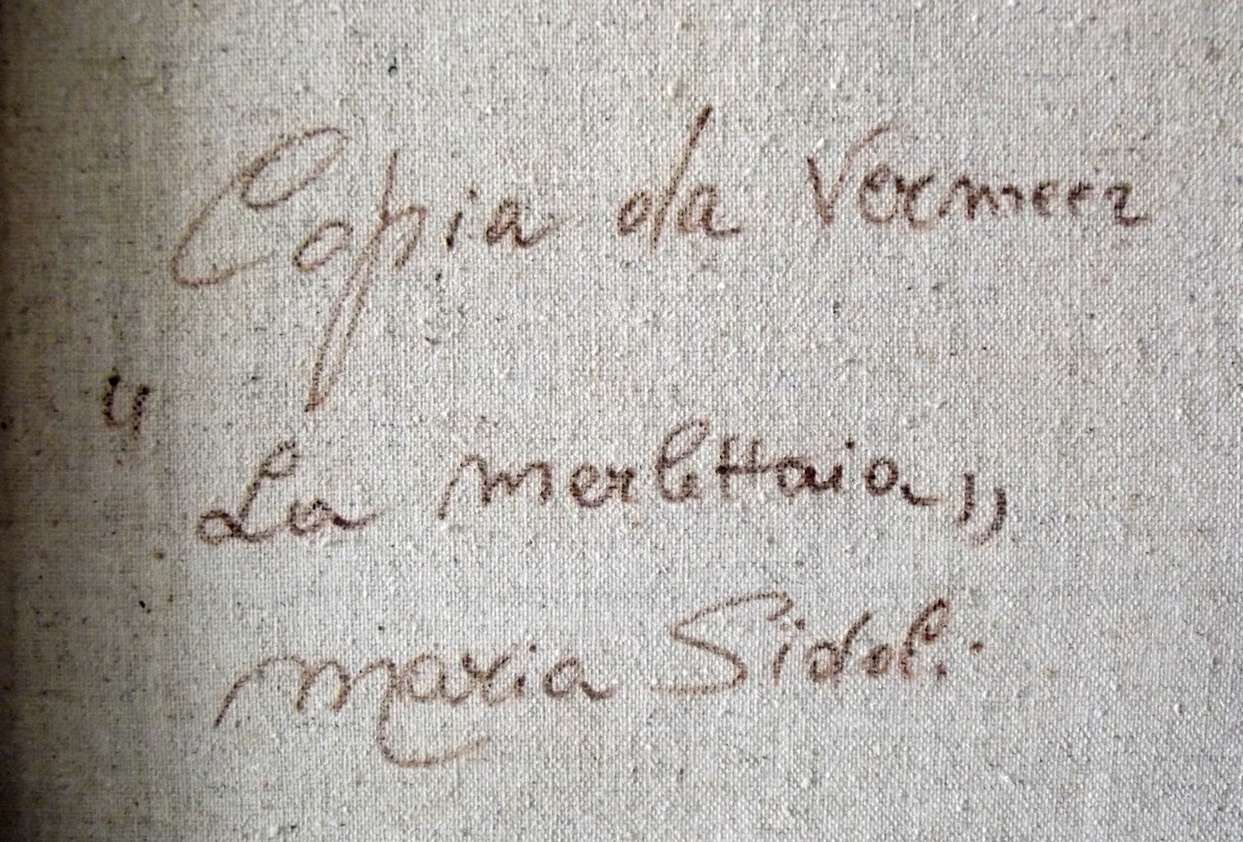 Copia da Vermeer
" La merlettaia "
Maria Sidoli